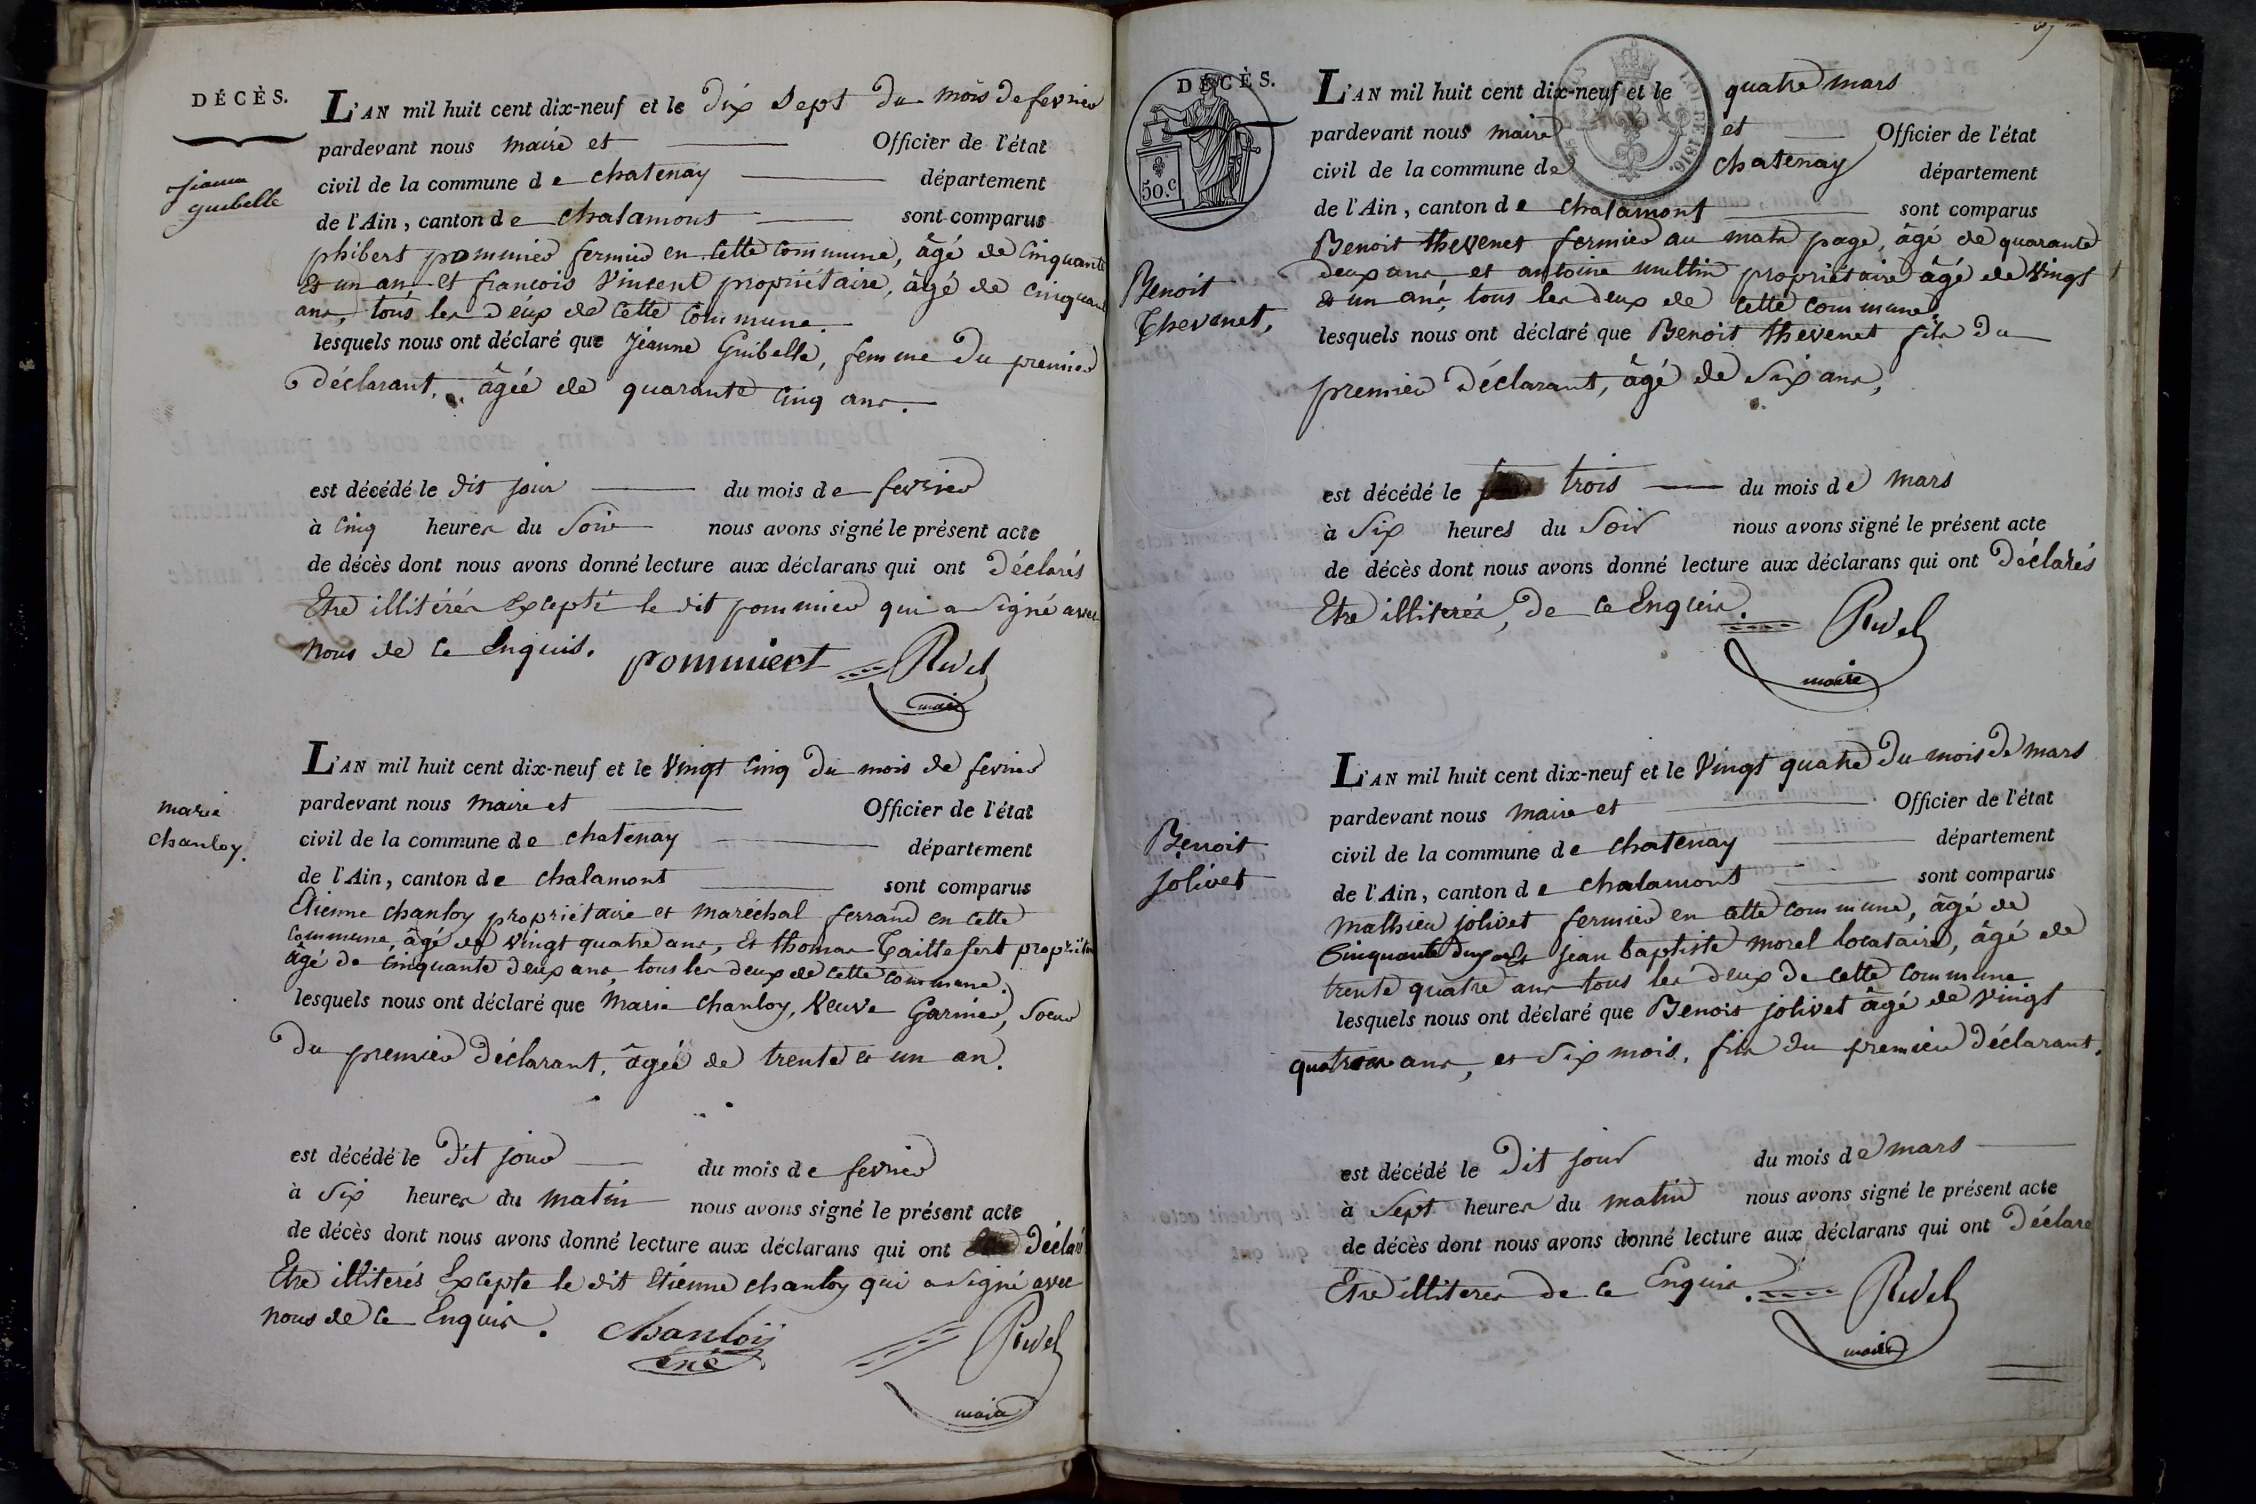 DÉCÈS.
Jeanne
guibelle
L'AN mil huit cent dix-neuf et le dix Sept du mois de fevrier
pardevant nous maire et Officier de l'état
civil de la commune de chatenay département
de l'Ain, canton de chalamont sont comparus
phibert pommier fermier en cette commune, âgé de Cinquante
et un an et francois Vincent propriétaire, âgé de cinquante
ans, tous les deux de cette commune.
lesquels nous ont déclaré que Jeanne Guibelle, femme du premier
déclarant, âgée de quarante cinq ans.
est décédé le dit jour du mois de fevrier
à Cinq heures du Soir nous avons signé le présent acte
de décès dont nous avons donné lecture aux déclarans qui ont déclarés
Etre illitérés Excepté le dit pommier qui a signé avec
nous de ce Enquis. pommiert Rivel
maire
marie
chanloy.
L'AN mil huit cent dix-neuf et le Vingt Cinq du mois de fevrier
pardevant nous maire et Officier de l'état
civil de la commune de chatenay département
de l'Ain, canton de chalamont sont comparus
Etienne chanloy propriétaire et maréchal ferrand en cette
commune, âgé de vingt quatre ans, Et thomas Taillefert propriétaire
âgé de cinquante deux ans, tous les deux de cette commune.
lesquels nous ont déclaré que Marie Chanloy, Veuve Garnier, Soeur
du premier déclarant, âgée de trente et un an.
est décédé le dit jour du mois de fevrier
à Six heures du matin nous avons signé le présent acte
de décès dont nous avons donné lecture aux déclarans qui ont déclaré
Etre illiterés Excepte le dit Etienne chanloy qui a signé avec
nous de ce Enquis. chanloÿ Rivel
ené maire
DÉCÈS.
50.c
LOI DE 1816.
Benoit
Thevenet,
L'AN mil huit cent dix-neuf et le quatre mars
pardevant nous maire et Officier de l'état
civil de la commune de chatenay département
de l'Ain, canton de chalamont sont comparus
Benoit thevenet fermier au mata page, âgé de quarante
deux ans et antoine mullin propriétaire âgé de vingt
et un ans, tous les deux de cette commune,
lesquels nous ont déclaré que Benoit thevenet fils du
premier déclarant, âgé de Six ans,
est décédé le trois du mois de mars
à Six heures du Soir nous avons signé le présent acte
de décès dont nous avons donné lecture aux déclarans qui ont déclarés
Etre illiterés, de ce Enquis. Rivel
maire
Benoit
jolivet
L'AN mil huit cent dix-neuf et le Vingt quatre du mois de mars
pardevant nous maire et Officier de l'état
civil de la commune de chatenay département
de l'Ain, canton de chalamont sont comparus
mathieu jolivet fermier en cette commune, âgé de
Cinquante jean baptiste morel locataire, âgé de
trente quatre ans tous les deux de cette commune
lesquels nous ont déclaré que Benoit jolivet âgé de vingt
quatre ans, et six mois, fils du premier déclarant.
est décédé le dit jour du mois de mars
à Sept heures du matin nous avons signé le présent acte
de décès dont nous avons donné lecture aux déclarans qui ont déclare
Etre illiteres de ce Enquis. Rivel
maire